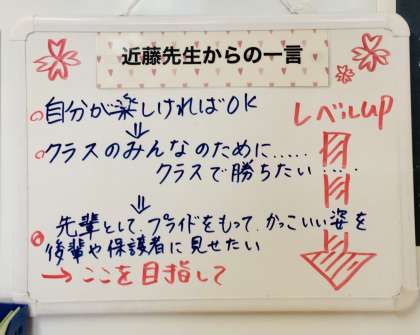 近藤先生からの一言
自分が楽しければOK
レベルup
クラスのみんなのために.....
クラスで勝ちたい....
先輩として、プライドをもって、かっこいい姿を
後輩や保護者に見せたい
→ここを目指して